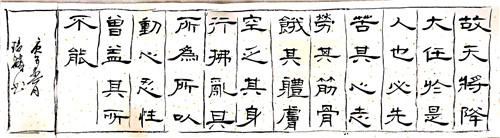 故天將降
大任於是
人也必先
苦其心志
勞其筋骨
餓其體膚
空乏其身
行拂亂其
所為所以
動心忍性
曾益其所
不能
庚子